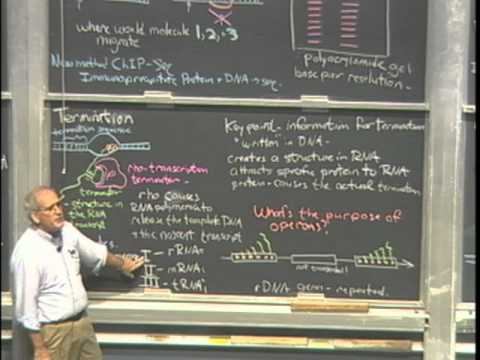 where would molecule 1, 2, + 3
migrate
New method ChIP-Seq
Immunoprecipitate Protein + DNA → seq.
polyacrylamide gel
base pair resolution.
Termination
termination sequence
rho-transcription
terminator
structure in
the RNA
rho causes
RNA polymerase to
release the template DNA
+ the nascent transcript
I - rRNA
II - mRNA
III - tRNA
Key point - information for termination
"written in DNA"
creates a structure in RNA
attracts specific protein to RNA
protein - causes the actual termination
What's the purpose of
operons?
not transcribed
rDNA genes - repeated